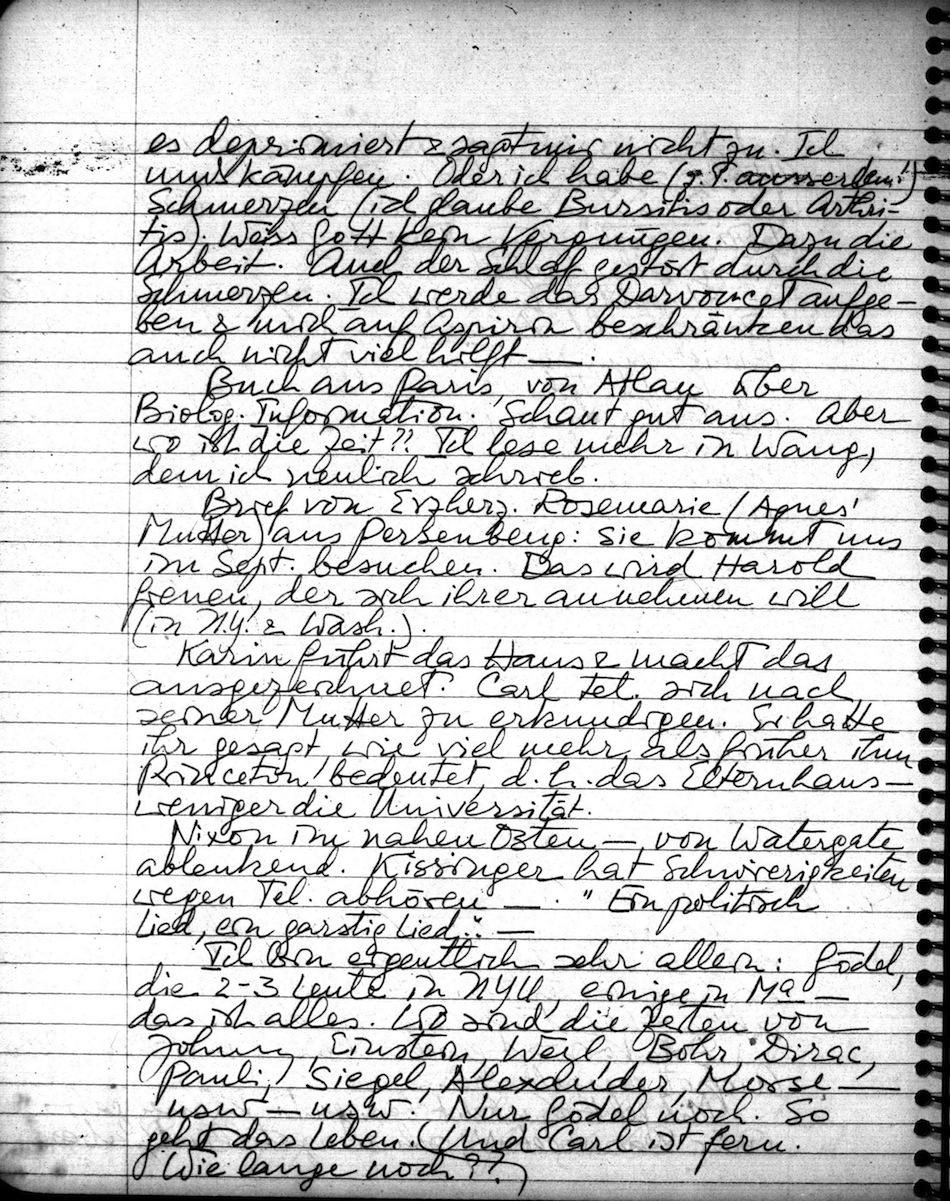 es deprimiert & sagt mir nicht zu. Ich
muss kämpfen. Oder ich habe (z.T. ausserdem!)
Schmerzen (ich glaube Bursitis oder Arthri-
tis). Weiss Gott kein Vergnügen. Dazu die
Arbeit. Auch der Schlaf gestört durch die
Schmerzen. Ich werde das Darvoncet aufge-
ben & mich auf Aspirin beschränken das
auch nicht viel hilft —.
Buch aus Paris, von Atlan über
Biolog. Information. Schaut gut aus. Aber
wo ist die Zeit?! Ich lese mehr in Wang,
dem ich neulich schrieb.
Brief von Erzherz. Rosemarie (Agnes'
Mutter) aus Persenbeug: Sie kommt uns
im Sept. besuchen. Das wird Harold
freuen, der sich ihrer annehmen will
(in N.Y. & Wash.).
Karin führt das Haus & macht das
ausgezeichnet. Carl tel. sich nach
seiner Mutter zu erkundigen. Er hatte
ihr gesagt, wie viel mehr als früher ihm
Princeton bedeutet, d.h. das Elternhaus —
weniger die Universität.
Nixon im nahen Osten — von Watergate
ablenkend. Kissinger hat Schwierigkeiten
wegen Tel. abhören —. "Ein politisch
Lied, ein garstig Lied." —
Ich bin eigentlich sehr allein: Gödel,
die 2-3 Leute in NYU, einige in Ma —
das ist alles. Wo sind die Zeiten von
Johnny, Einstein, Weyl, Bohr, Dirac,
Pauli, Siegel, Alexander, Morse —
usw — usw. Nur Gödel noch. So
geht das Leben. (Und Carl ist fern.
Wie lange noch??)